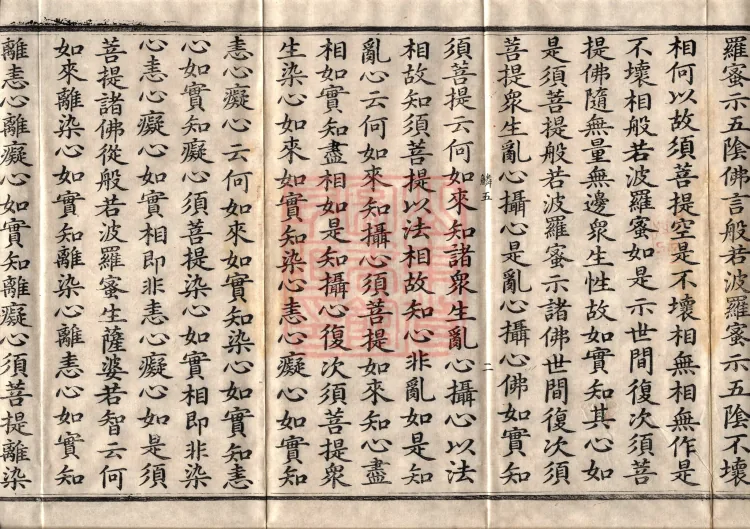 羅蜜示五陰佛言般若波羅蜜示五陰不壞
相何以故須菩提空是不壞相無相無作是
不壞相般若波羅蜜如是示世間復次須菩
提佛隨無量無邊衆生性故如實知其心如
是須菩提般若波羅蜜示諸佛世間復次須
菩提衆生亂心攝心是亂心攝心佛如實知
鱗五
二
須菩提云何如來知諸衆生亂心攝心以法
相故知須菩提以法相故知心非亂如是知
亂心云何如來知攝心須菩提如來知心盡
相如實知盡相如是知攝心復次須菩提衆
生染心如來如實知染心恚心癡心如實知
恚心癡心云何如來如實知染心如實知恚
心如實知癡心須菩提染心如實相即非染
心恚心癡心如實相即非恚心癡心如是須
菩提諸佛從般若波羅蜜生薩婆若智云何
如來離染心如實知離染心離恚心如實知
離恚心離癡心如實知離癡心須菩提離染